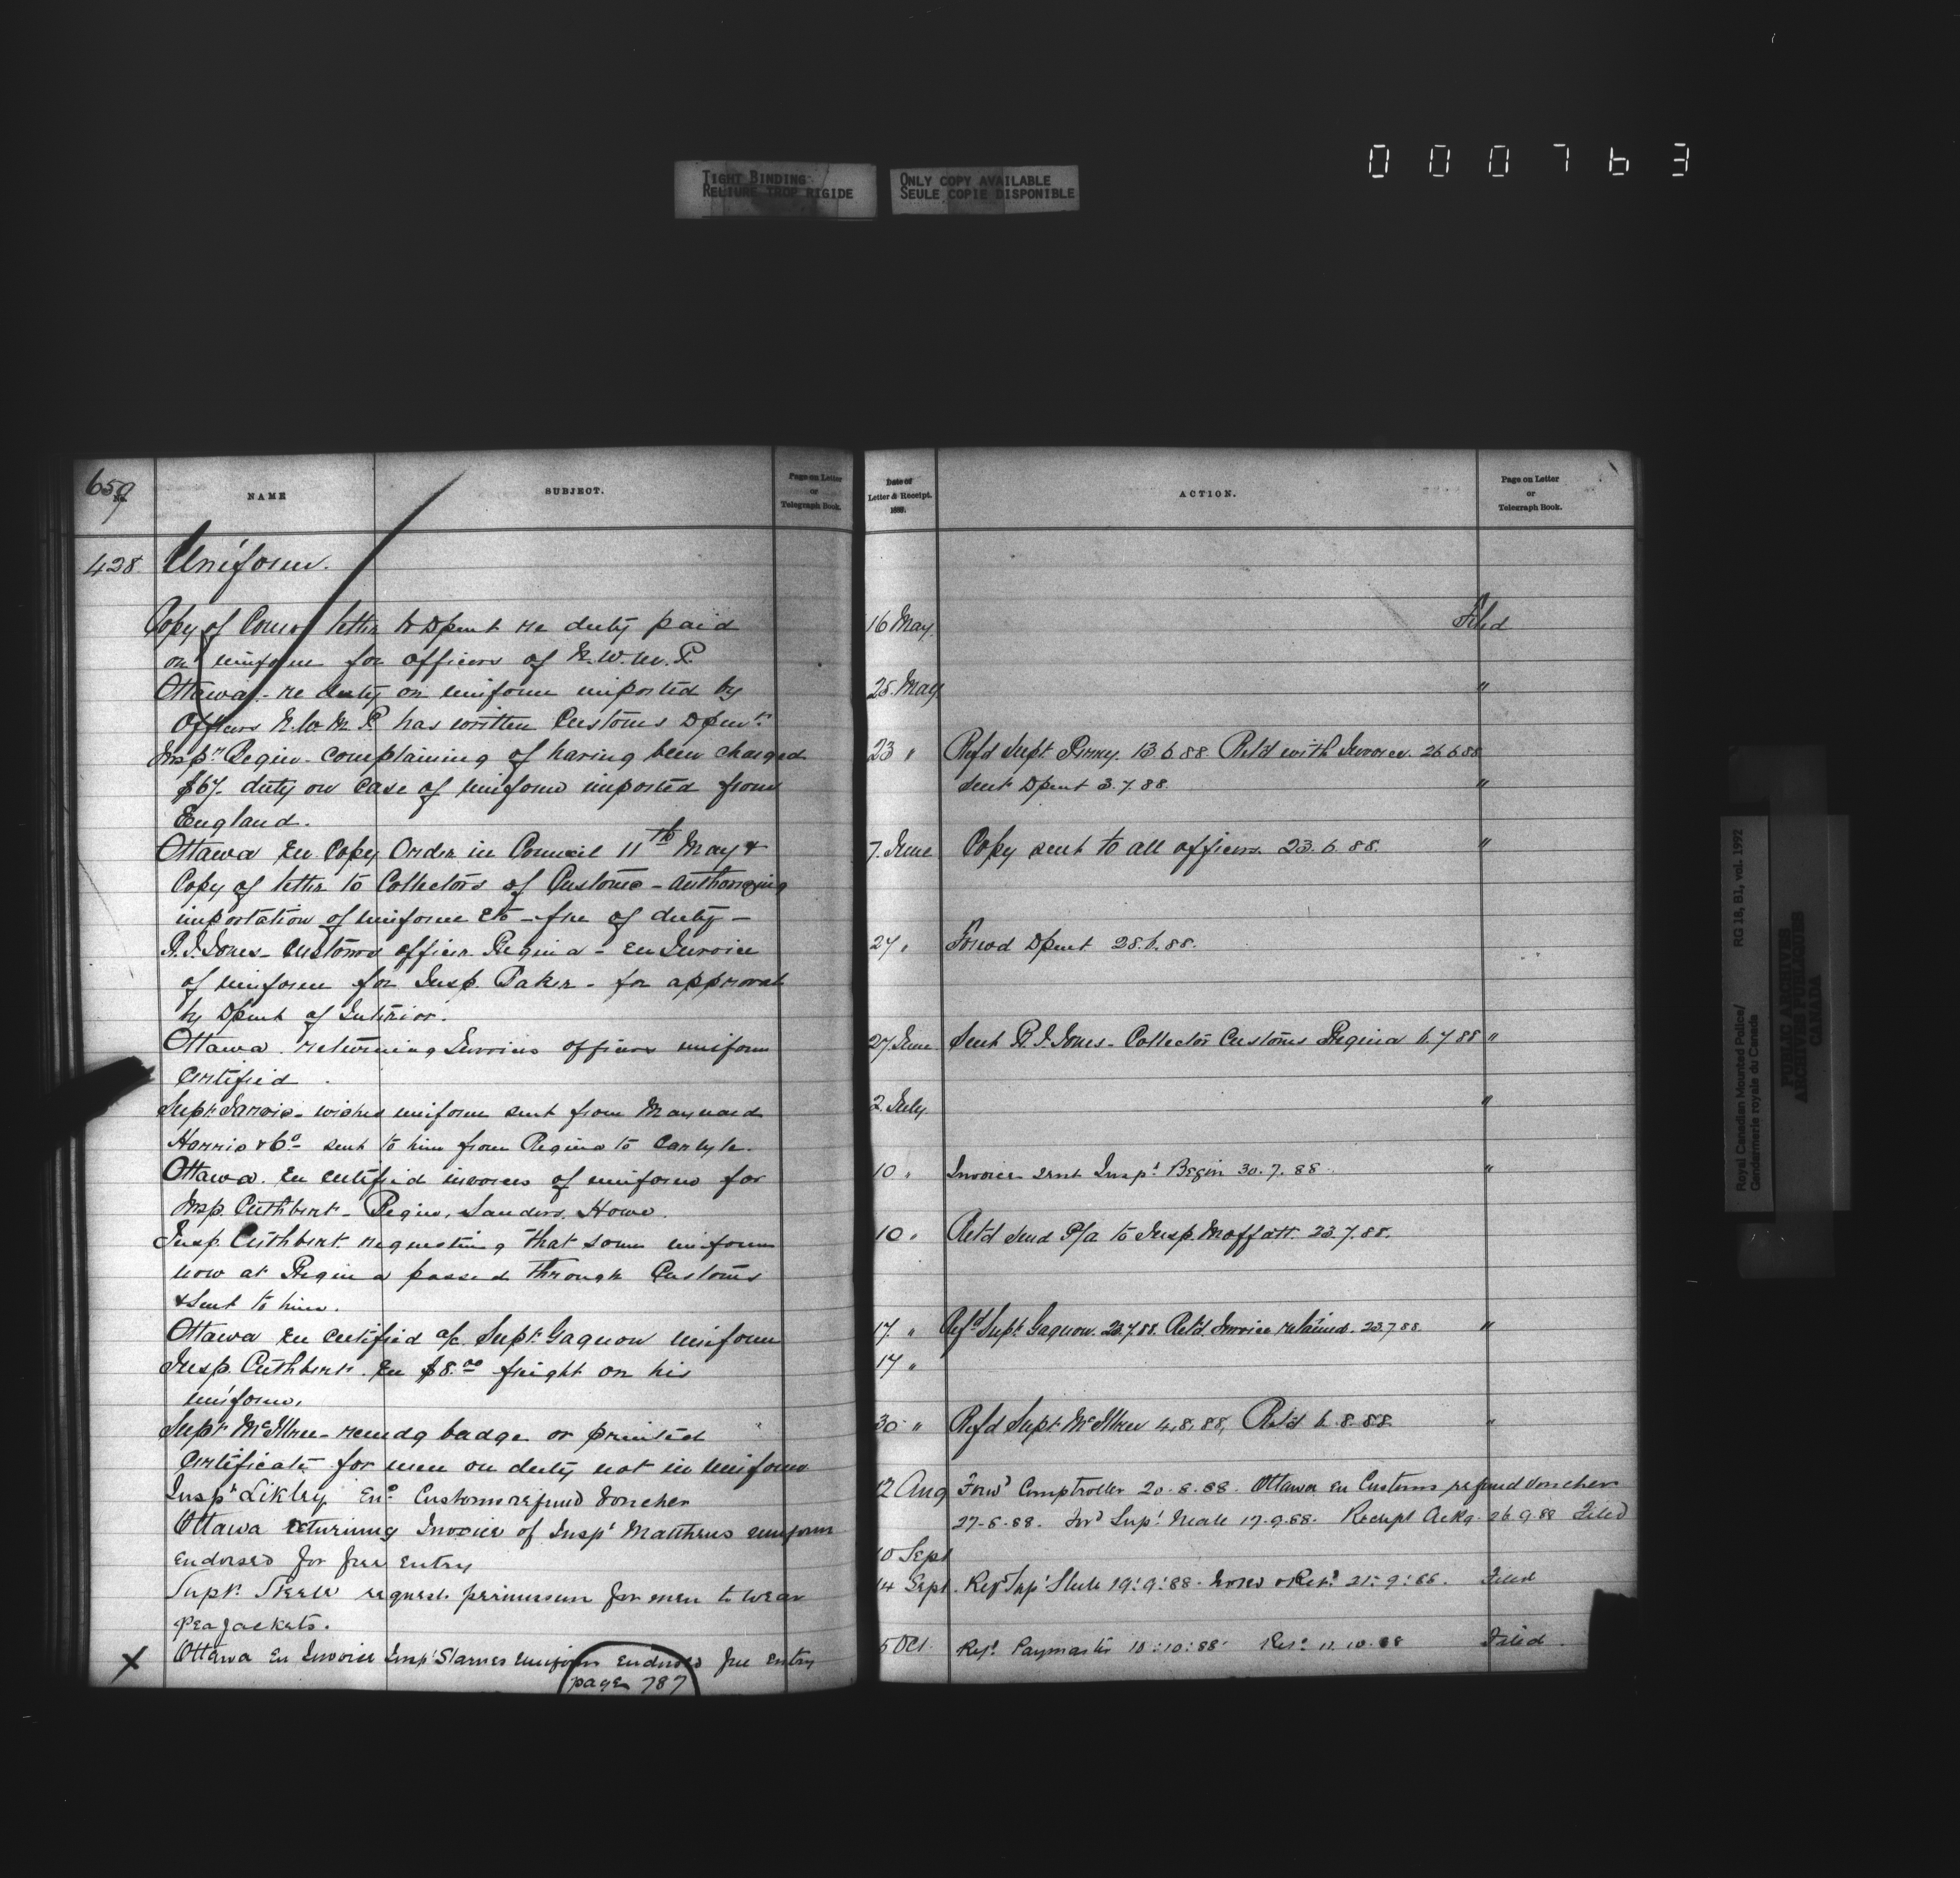 000763
TIGHT BINDING
RELIURE TROP RIGIDE
ONLY COPY AVAILABLE
SEULE COPIE DISPONIBLE
659
No.
NAME
SUBJECT.
Page on Letter
or
Telegraph Book.
428 Uniform.
Copy of Compr letter to Dpent re duty paid
on uniform for officers of N.W.M.P.
Ottawa - re duty on uniform imported by
Officers N.W.M.P. has written Customs Dpent
Inspr Begin - complaining of having been charged
$67. duty on case of uniform imported from
England.
Ottawa En Copy Order in Council 11th May &
Copy of letter to Collectors of Customs - authorizing
importation of uniform Etc - free of duty -
R.J. Jones - Customs officer Regina - En Invoice
of uniform for Insp. Baker - for approval
by Dpent of Interior.
Ottawa. returning Invoices officers uniform
Certified.
Supt Jarvis - wishes uniform sent from Maynard
Harris & Co - sent to him from Regina to Carlyle.
Ottawa. En certified invoices of uniform for
Insp. Cuthbert - Begin, Sanders, Howe.
Insp. Cuthbert requesting that some uniform
now at Regina passed through Customs
& sent to him.
Ottawa En certified a/c Supt Gagnon uniform
Insp. Cuthbert. En $8.00 freight on his
uniform.
Supt McIllree - recmdg badge or printed
Certificate for men on duty not in uniform
Inspr Likely Enc Customs refund voucher
Ottawa returning Invoice of Inspr Matthews uniform
endorsed for free entry
Supt. Steele requests permission for men to wear
pea jackets.
X Ottawa En Invoice Inspr Starnes uniform endorsed free entry
page 787
Date of
Letter & Receipt.
1888.
ACTION.
Page on Letter
or
Telegraph Book.
16 May Filed
25. May "
23 " Refd Supt. Perry. 13.6.88 Retd with Invoice. 26.6.88
Sent Dpent 3.7.88. "
7. June Copy sent to all officers. 23.6.88. "
27 " Forwd Dpent 28.6.88.
27 June Sent R.J. Jones - Collector Customs Regina 6.7.88 "
2. July "
10 " Invoice sent Inspr Begin 30.7.88 "
10 " Retd send P/a to Insp. Moffatt 23.7.88.
17 " Refd Supt Gagnon. 23.7.88. Retd. Invoice retained. 23.7.88. "
17 "
30 " Refd Supt McIllree 4.8.88, Retd 6.8.88. "
12 Aug Forwd Comptroller 20.8.88. Ottawa En Customs refund voucher
27-8.88. Forwd Supt Neale 17.9.88. Receipt Ackg. 26.9.88 Filed
10 Sept
14 Sept. Refd Supt Steele 19:9:88. & Retd 21:9:88. Filed
5 Oct. Refd Paymaster 10:10:88. Retd 11.10.88 Filed
Royal Canadian Mounted Police/
Gendarmerie royale du Canada
RG 18, B1, vol. 1992
PUBLIC ARCHIVES
ARCHIVES PUBLIQUES
CANADA